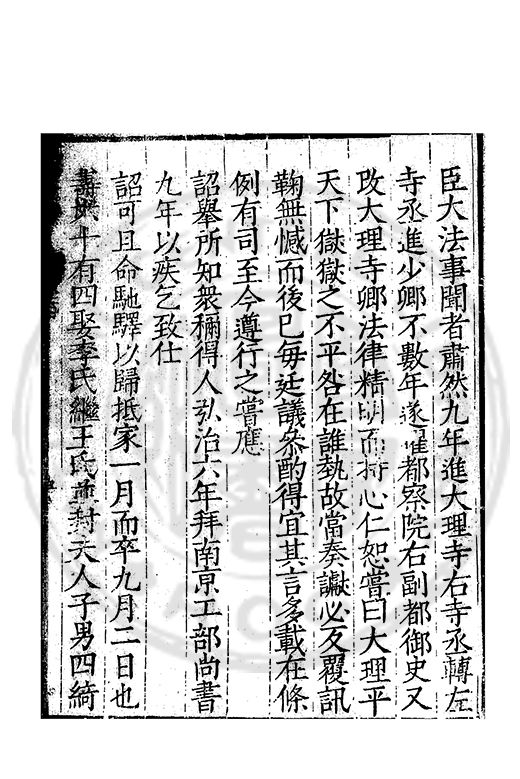 臣大法事聞者肅然九年進大理寺右寺丞轉左
寺丞進少卿不數年遂擢都察院右副都御史又
改大理寺卿法律精明而持心仁恕嘗曰大理平
天下獄獄之不平咎在誰執故當奏讞必反覆訊
鞠無憾而後已每廷議叅酌得宜其言多載在條
例有司至今遵行之嘗應
詔舉所知衆稱得人弘治六年拜南京工部尚書
九年以疾乞致仕
詔可且命馳驛以歸抵家一月而卒九月二日也
壽十有四娶李氏繼王氏並封夫人子男四綺